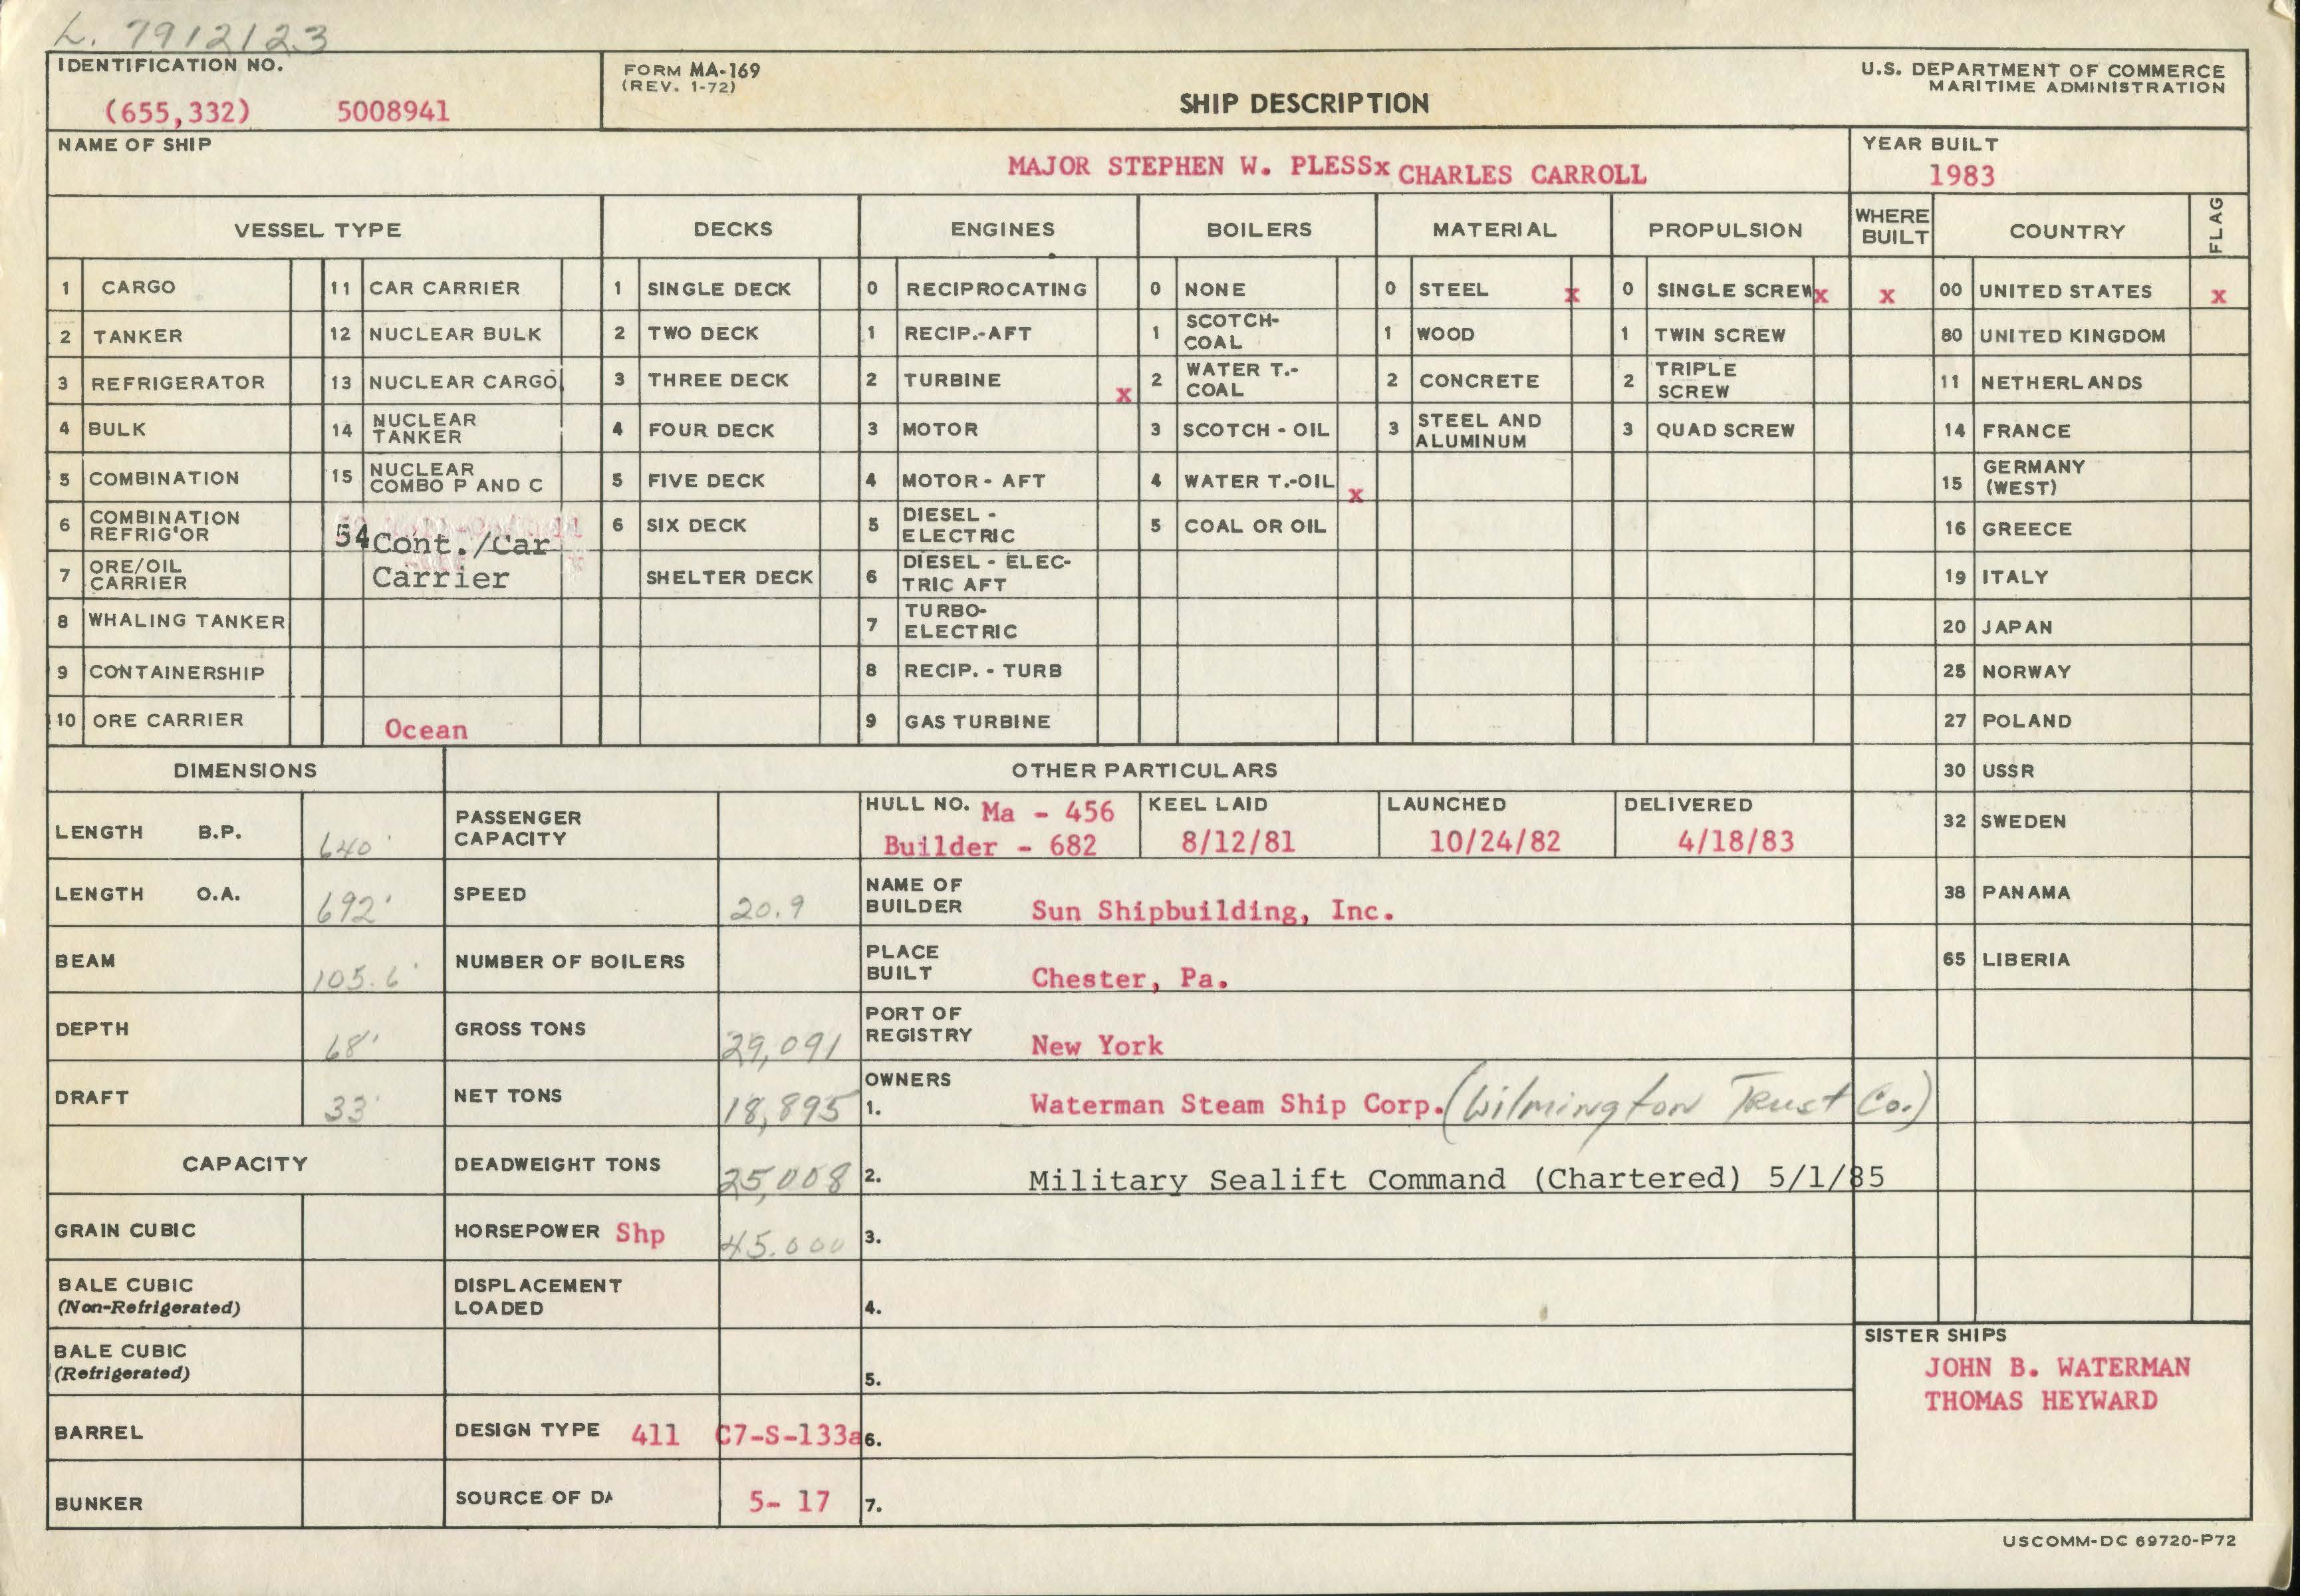 L. 7912123
IDENTIFICATION NO.
(655,332) 5008941
FORM MA-169
(REV. 1-72)
SHIP DESCRIPTION
U.S. DEPARTMENT OF COMMERCE
MARITIME ADMINISTRATION
NAME OF SHIP
MAJOR STEPHEN W. PLESSx CHARLES CARROLL
YEAR BUILT
1983
VESSEL TYPE DECKS ENGINES BOILERS MATERIAL PROPULSION WHERE BUILT COUNTRY FLAG
1 CARGO 11 CAR CARRIER 1 SINGLE DECK 0 RECIPROCATING 0 NONE 0 STEEL x 0 SINGLE SCREW x x 00 UNITED STATES x
2 TANKER 12 NUCLEAR BULK 2 TWO DECK 1 RECIP.-AFT 1 SCOTCH-COAL 1 WOOD 1 TWIN SCREW 80 UNITED KINGDOM
3 REFRIGERATOR 13 NUCLEAR CARGO 3 THREE DECK 2 TURBINE x 2 WATER T.-COAL 2 CONCRETE 2 TRIPLE SCREW 11 NETHERLANDS
4 BULK 14 NUCLEAR TANKER 4 FOUR DECK 3 MOTOR 3 SCOTCH - OIL 3 STEEL AND ALUMINUM 3 QUAD SCREW 14 FRANCE
5 COMBINATION 15 NUCLEAR COMBO P AND C 5 FIVE DECK 4 MOTOR - AFT 4 WATER T.-OIL x 15 GERMANY (WEST)
6 COMBINATION REFRIG'OR 54 Cont./Car Carrier 6 SIX DECK 5 DIESEL - ELECTRIC 5 COAL OR OIL 16 GREECE
7 ORE/OIL CARRIER SHELTER DECK 6 DIESEL - ELECTRIC AFT 19 ITALY
8 WHALING TANKER 7 TURBO-ELECTRIC 20 JAPAN
9 CONTAINERSHIP 8 RECIP. - TURB 25 NORWAY
10 ORE CARRIER Ocean 9 GAS TURBINE 27 POLAND
DIMENSIONS OTHER PARTICULARS 30 USSR
LENGTH B.P. 640' PASSENGER CAPACITY HULL NO. Ma - 456 Builder - 682 KEEL LAID 8/12/81 LAUNCHED 10/24/82 DELIVERED 4/18/83 32 SWEDEN
LENGTH O.A. 692' SPEED 20.9 NAME OF BUILDER Sun Shipbuilding, Inc. 38 PANAMA
BEAM 105.6' NUMBER OF BOILERS PLACE BUILT Chester, Pa. 65 LIBERIA
DEPTH 68' GROSS TONS 29,091 PORT OF REGISTRY New York
DRAFT 33' NET TONS 18,895 OWNERS 1. Waterman Steam Ship Corp. (Wilmington Trust Co.)
CAPACITY DEADWEIGHT TONS 25,008 2. Military Sealift Command (Chartered) 5/1/85
GRAIN CUBIC HORSEPOWER Shp 45.000 3.
BALE CUBIC (Non-Refrigerated) DISPLACEMENT LOADED 4.
BALE CUBIC (Refrigerated) 5.
SISTER SHIPS
JOHN B. WATERMAN
THOMAS HEYWARD
BARREL DESIGN TYPE 411 C7-S-133a 6.
BUNKER SOURCE OF DA 5- 17 7.
USCOMM-DC 69720-P72